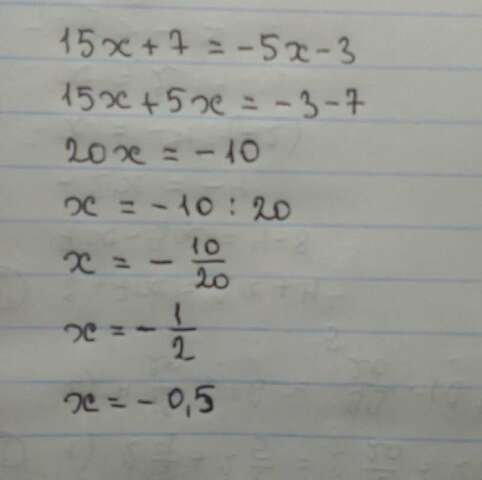 15x + 7 = -5x - 3
15x + 5x = -3 - 7
20x = -10
x = -10 : 20
x = - 10/20
x = - 1/2
x = - 0,5